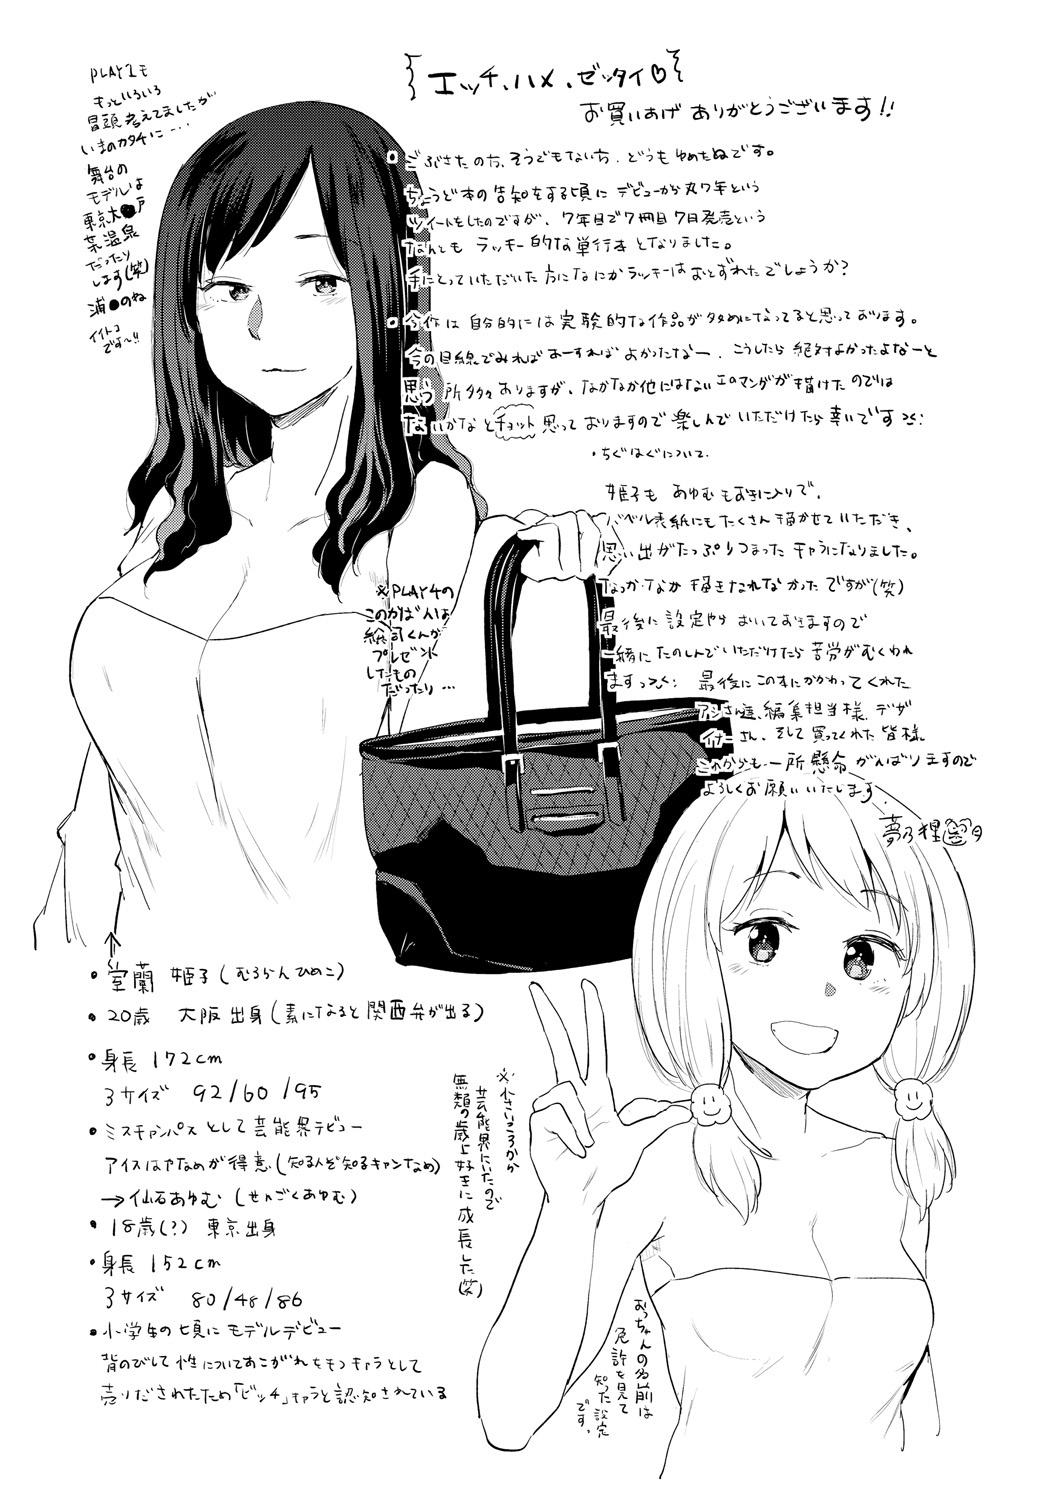 エッチ、ハメ、ゼッタイ♡
お買いあげ ありがとうございます!!
PLAY1も
もっといろいろ
冒頭考えてましたが
いまのカタチに…
舞台の
モデルは
東京大●戸
菜温泉
だったり
します(笑)
浦●のね
イイトコ
です〜!!
ごぶさたの方、そうでもない方、どうもゆめたぬです。
ちょうど本の告知をする頃に デビューから丸7年という
ツイートをしたのですが、7年目で7冊目7月発売という
なんとも ラッキー的な単行本となりました。
手にとっていただいた方になにかラッキーはおとずれたでしょうか?
今作は自分的には実験的な作品が多めになってると思っております。
今の目線でみればあーすれば よかったなー、こうしたら絶対よかったよなーと
思う所多々ありますが、なかなか他にはないエロマンガが描けたのでは
ないかなとチョット思っておりますので楽しんでいただけたら幸いです
・ちぐはぐについて.
姫子も あゆむもお気に入りで、
バベル表紙にもたくさん描かせていただき、
思い出がたっぷりつまったキャラになりました。
なっかなか描きなれなかったですが(笑)
最後に設定やら おいておきますので
一緒にたのしんでいただけたら苦労がむくわれ
ますっ 最後にこの本にかかわってくれた
アシさん達、編集担当様、デザ
イナーさん、そして買ってくれた皆様
これからも一所懸命がんばりますので
よろしくお願いいたします.
夢乃狸
※PLAY4の
このかばんは
絵司くんが
プレゼント
したもの
だったり…
↑
・室蘭 姫子(むろらんひめこ)
・20歳 大阪出身(素になると関西弁が出る)
・身長 172cm
3サイズ 92/60/95
・ミスキャンパスとして芸能界デビュー
アイスはやなめが得意(知る人ぞ知るキャンなめ)
→仙石あゆむ(せんごくあゆむ)
・18歳(?) 東京出身
・身長 152cm
3サイズ 80/48/86
・小学生の頃にモデルデビュー
背のびして性についてあこがれをもつキャラとして
売りだされたため「ビッチ」キャラと認知されている
※小さいころから
芸能界にいたので
無類の歳上好きに成長した(笑)
おっちゃんの名前は
免許を見て
知った設定
です。